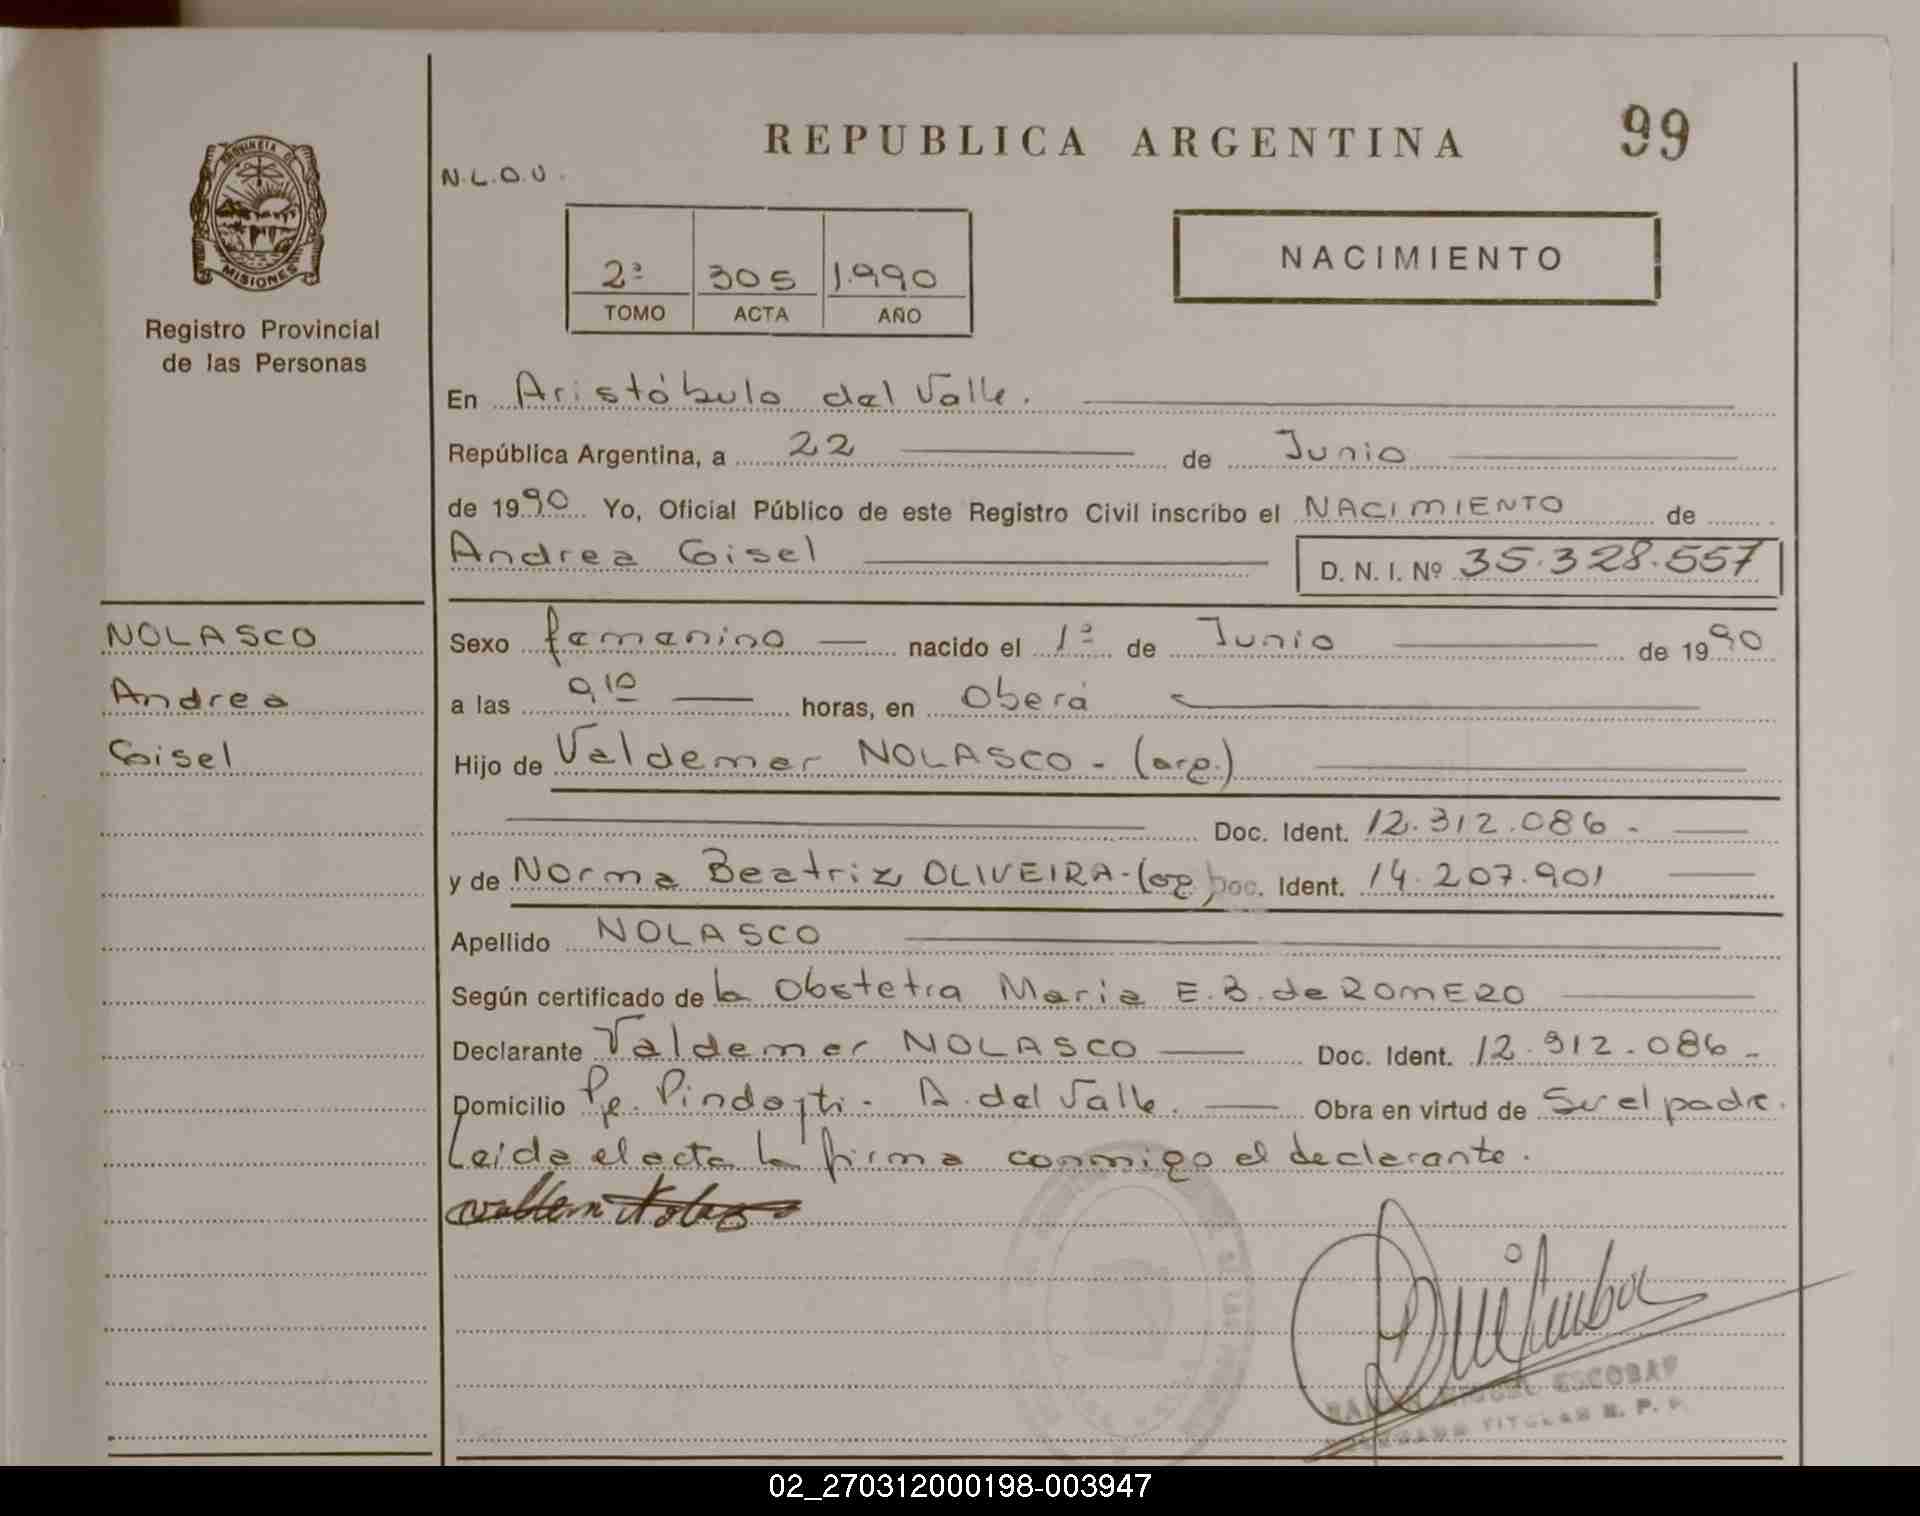 REPUBLICA ARGENTINA
99
PROVINCIA DE
MISIONES
Registro Provincial
de las Personas
N.L.O.U.
2ª 305 1.990
TOMO ACTA AÑO
NACIMIENTO
En Aristóbulo del Valle.
República Argentina, a 22 de Junio
de 1990 Yo, Oficial Público de este Registro Civil inscribo el NACIMIENTO de
Andrea Gisel D. N. I. Nº 35.328.557
NOLASCO
Andrea
Gisel
Sexo femenino nacido el 1º de Junio de 1990
a las 9,10 horas, en Oberá
Hijo de Valdemar NOLASCO - (arg.)
Doc. Ident. 12.312.086 -
y de Norma Beatriz OLIVEIRA - (arg.) Doc. Ident. 14.207.901
Apellido NOLASCO
Según certificado de la Obstetra Maria E. B. de ROMERO
Declarante Valdemar NOLASCO Doc. Ident. 12.312.086 -
Domicilio - A. del Valle. Obra en virtud de Ser el padre.
Leida el acta la firma conmigo el declarante.
ESCOBAR
TITULAR R. P. P.
02_270312000198-003947